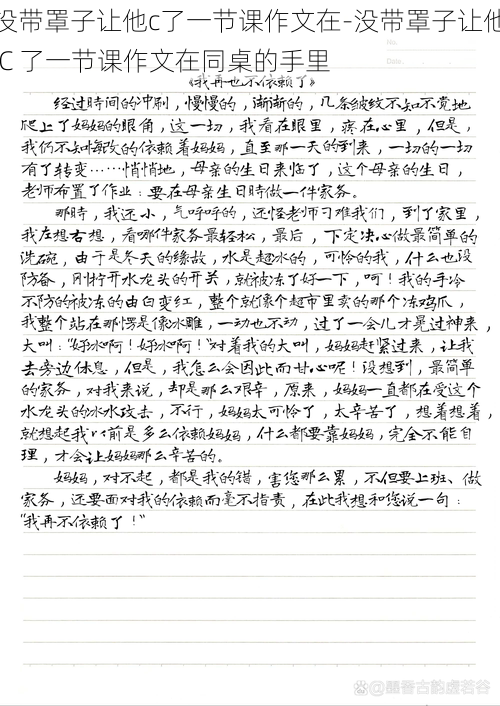 没带罩子让他c了一节课作文在-没带罩子让他
C了一节课作文在同桌的手里
No.
Date.
《我再也不依赖了》
经过时间的冲刷，慢慢的，渐渐的，几条皱纹不知不觉地
爬上了妈妈的眼角，这一切，我看在眼里，疼在心里，但是，
我仍不知悔改的依赖着妈妈，直至那一天的到来，一切的一切
有了转变……悄悄地，母亲的生日来临了，这个母亲的生日，
老师布置了作业：要在母亲生日时做一件家务。
那时，我还小，气呼呼的，还怪老师刁难我们，到了家里，
我左想右想，看哪件家务最轻松，最后，下定决心做最简单的
洗碗，由于是冬天的缘故，水是超冰的，可怜的我，什么也没
防备，刚拧开水龙头的开关，就被冻了好一下，呵！我的手冷
不防的被冻的由白变红，整个就像个超市里卖的那个冻鸡爪，
我整个站在那愣是像冰雕，一动也不动，过了一会儿才晃过神来，
大叫："好冰啊！好冰啊！"对着我的大叫，妈妈赶紧过来，让我
去旁边休息，但是，我怎么会因此而甘心呢！没想到，最简单
的家务，对我来说，却是那么艰辛，原来，妈妈一直都在受这个
水龙头的冰水攻击，不行，妈妈太可怜了，太辛苦了，想着想着，
就想起我以前是多么依赖妈妈，什么都要靠妈妈，完全不能自
理，才会让妈妈那么辛苦的。
妈妈，对不起，都是我的错，害您那么累，不但要上班、做
家务，还要面对我的依赖而毫不指责，在此我想和您说一句：
"我再不依赖了！"